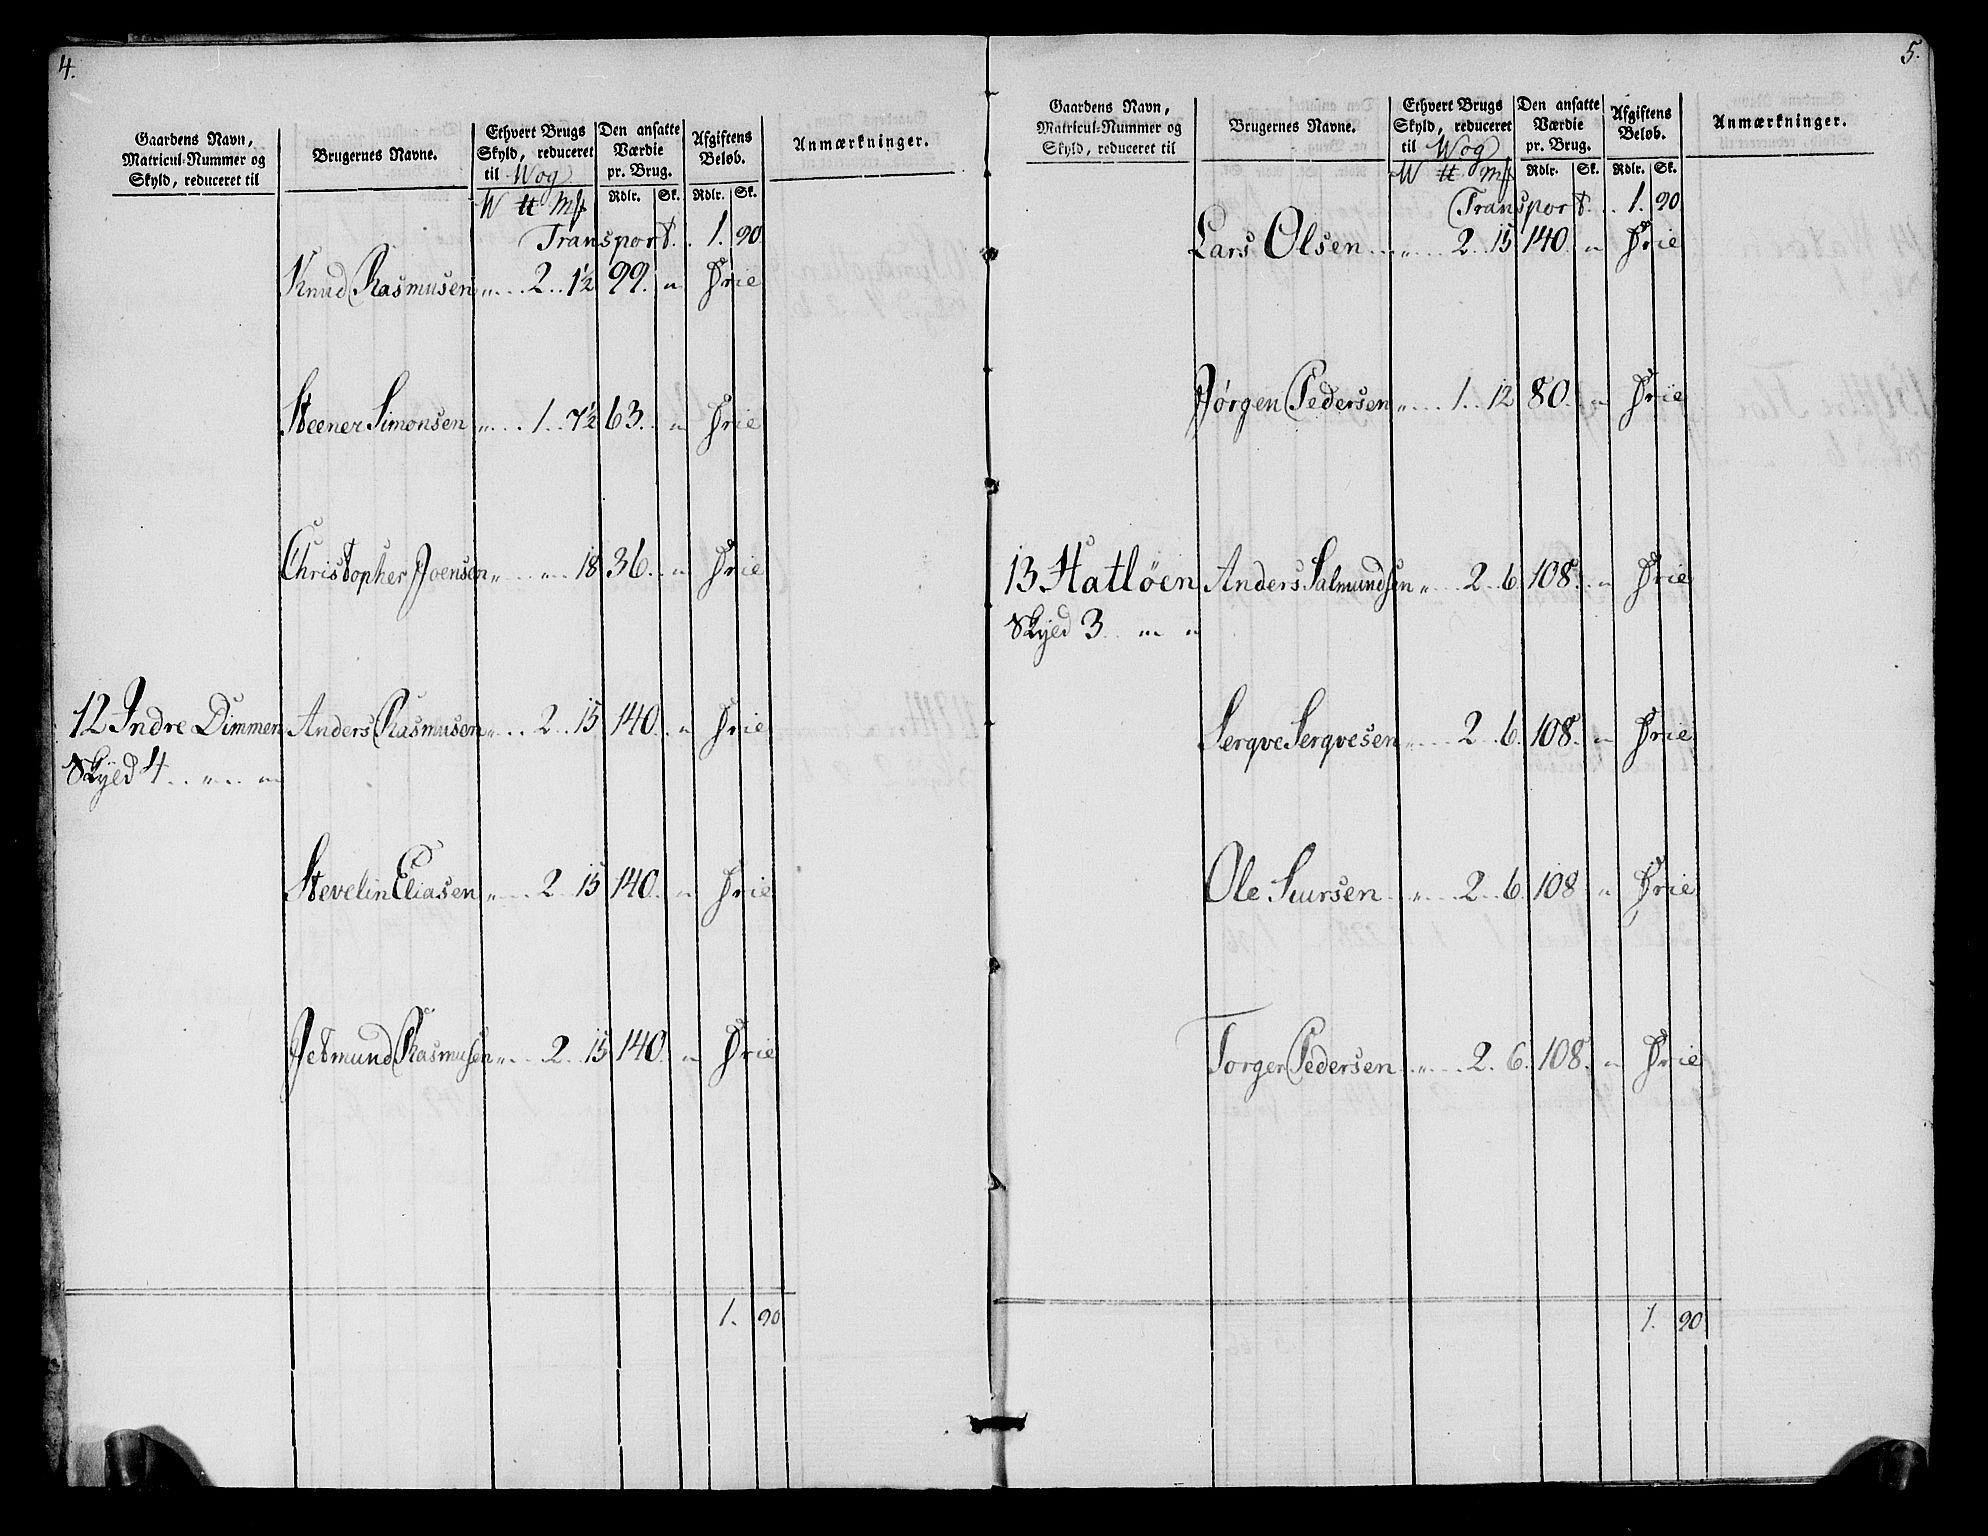 4.
Gaardens Navn, Matricul-Nummer og Skyld, reduceret til | Brugernes Navne. | Ethvert Brugs Skyld, reduceret til Wog | Den ansatte Værdie pr. Brug. | Afgiftens Beløb. | Anmærkninger.
W ℔ Mk | Rdlr. | Sk. | Rdlr. | Sk.
Transport. . 1. 90
Knud Rasmusen „ . . . 2 . . 1½ 99. „ Frie
Steener Simonsen „ . . . 1 . . 7½ 63. . „ Frie
Christopher Joensen „ . . . „ . . 18 36. . „ Frie
12 Indre Dimmen Anders Rasmusen „ . . . 2 . . 15 140. . „ Frie
Skyld 4 . . „ . . „
Stevelin Eliasen „ . . . 2 . . 15 140. . „ Frie
Jetmund Rasmusen „ . . . 2 . . 15 140. . „ Frie
1. 90
5.
Gaardens Navn, Matricul-Nummer og Skyld, reduceret til | Brugernes Navne. | Ethvert Brugs Skyld, reduceret til Wog | Den ansatte Værdie pr. Brug. | Afgiftens Beløb. | Anmærkninger.
W ℔ Mk | Rdlr. | Sk. | Rdlr. | Sk.
Transport. . 1. 90
Lars Olsen . . . „ . . . 2 . . 15 140. . „ Frie
Jørgen Pedersen „ . . . 1 . . 12 80. . „ Frie
13 Hatløen Anders Salmundsen „ . . . 2 . . 6. 108. . „ Frie
Skyld 3 . „ „
Serqve Serqvesen „ . . . 2 . . 6. 108. . „ Frie
Ole Siursen . . . „ . . . 2 . . 6. 108 „ Frie
Torger Pedersen . . „ . . . 2. 6. 108. . „ Frie
1. 90